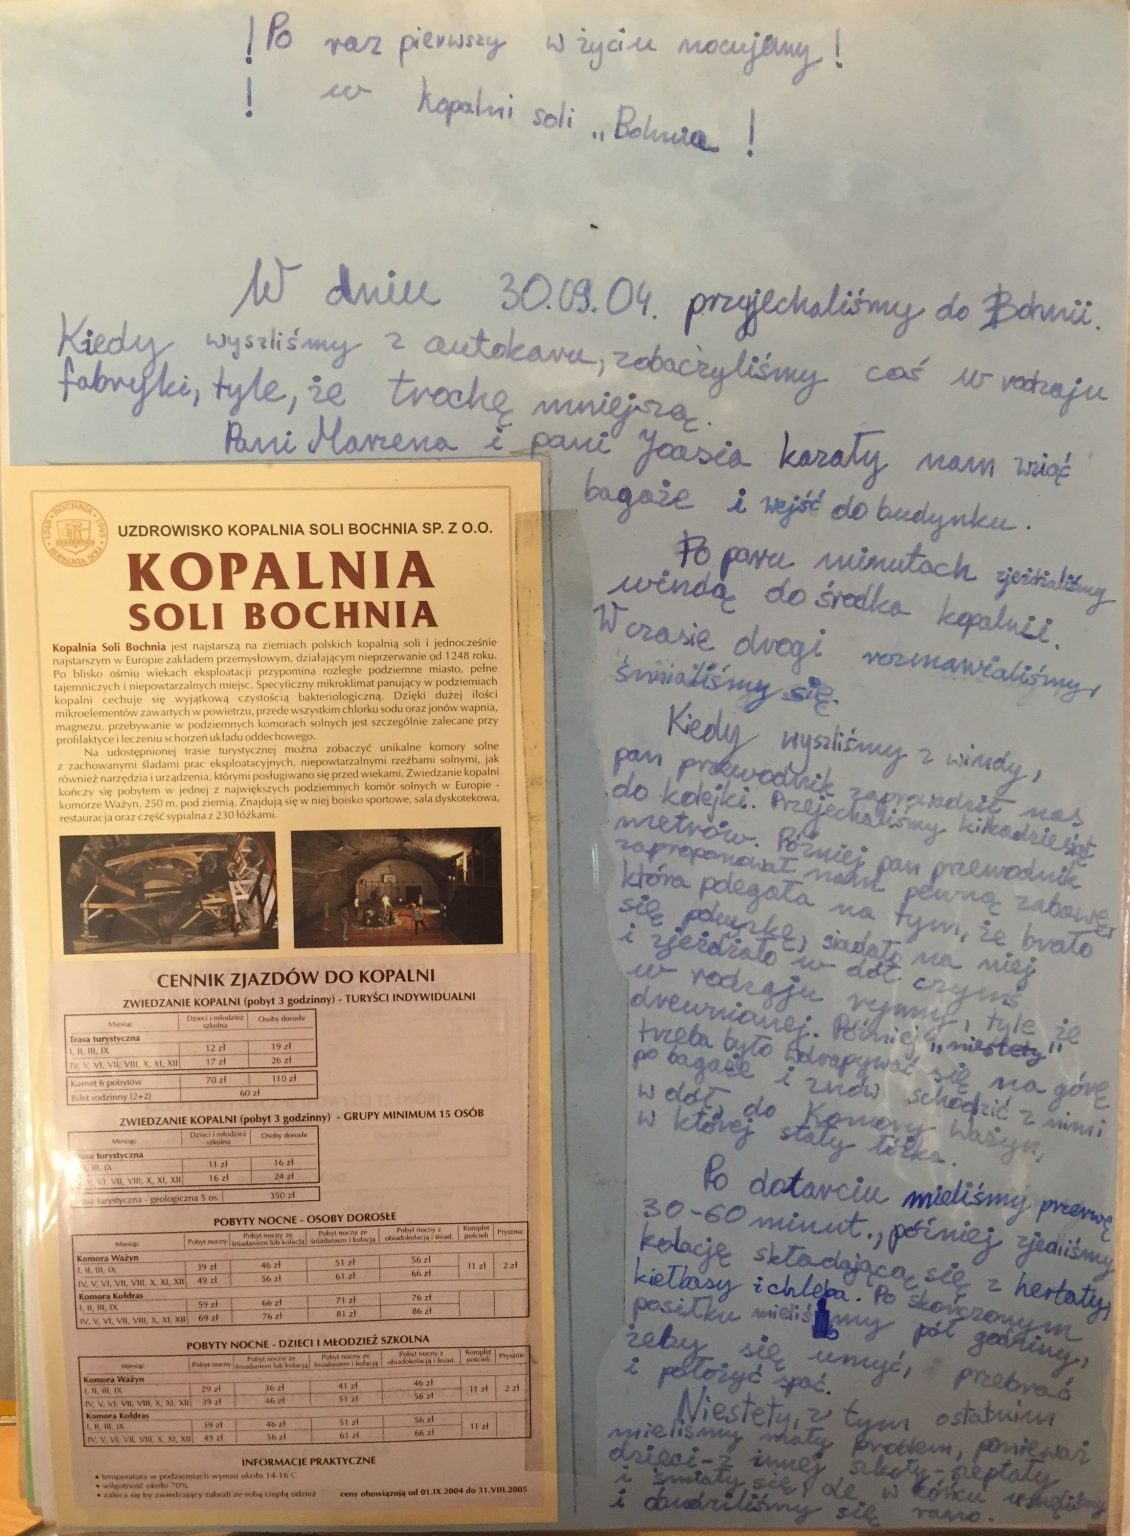 ! Po raz pierwszy w życiu nocujemy !
! w kopalni soli „Bohnia !
W dniu 30.09.04. przyjechaliśmy do Bohnii.
Kiedy wyszliśmy z autokaru, zobaczyliśmy coś w rodzaju
fabryki, tyle, że trochę mniejszą.
Pani Marzena i pani Joasia kazały nam wziąć
bagaże i wejść do budynku.
Po paru minutach zjeżdżaliśmy
windą do środka kopalnii.
W czasie drogi rozmawialiśmy,
śmialiśmy się.
Kiedy wyszliśmy z windy,
pan przewodnik zaprowadził nas
do kolejki. Przejechaliśmy kilkadziesiąt
metrów. Później pan przewodnik
zaproponował nam pewną zabawę,
która polegała na tym, że brało
się poduszkę, siadało na niej
i zjeżdżało w dół czymś
w rodzaju rynny, tyle że
drewnianej. Później „niestety"
trzeba było wdrapywać się na górę
po bagaże i znów schodzić z nimi
w dół do Komory Ważyn,
w której stały łóżka.
Po dotarciu mieliśmy przerwę
30-60 minut., później zjedliśmy
kolację składającą się z herbaty,
kiełbasy i chleba. Po skończonym
posiłku mieliśmy pół godziny,
żeby się umyć, przebrać
i położyć spać.
Niestety, z tym ostatnim
mieliśmy mały problem, ponieważ
dzieci-z innej szkoły-szeptały
i śmiały się, ale w końcu usnęliśmy
i obudziliśmy się rano.
1248 • BOCHNIA • 1995
KOPALNIA SOLI
UZDROWISKO KOPALNIA SOLI BOCHNIA SP. Z O.O.
KOPALNIA
SOLI BOCHNIA
Kopalnia Soli Bochnia jest najstarszą na ziemiach polskich kopalnią soli i jednocześnie
najstarszym w Europie zakładem przemysłowym, działającym nieprzerwanie od 1248 roku.
Po blisko ośmiu wiekach eksploatacji przypomina rozległe podziemne miasto, pełne
tajemniczych i niepowtarzalnych miejsc. Specyficzny mikroklimat panujący w podziemiach
kopalni cechuje się wyjątkową czystością bakteriologiczną. Dzięki dużej ilości
mikroelementów zawartych w powietrzu, przede wszystkim chlorku sodu oraz jonów wapnia,
magnezu, przebywanie w podziemnych komorach solnych jest szczególnie zalecane przy
profilaktyce i leczeniu schorzeń układu oddechowego.
Na udostępnionej trasie turystycznej można zobaczyć unikalne komory solne
z zachowanymi śladami prac eksploatacyjnych, niepowtarzalnymi rzeźbami solnymi, jak
również narzędzia i urządzenia, którymi posługiwano się przed wiekami. Zwiedzanie kopalni
kończy się pobytem w jednej z największych podziemnych komór solnych w Europie -
komorze Ważyn, 250 m. pod ziemią. Znajdują się w niej boisko sportowe, sala dyskotekowa,
restauracja oraz część sypialna z 230 łóżkami.
CENNIK ZJAZDÓW DO KOPALNI
ZWIEDZANIE KOPALNI (pobyt 3 godzinny) - TURYŚCI INDYWIDUALNI
Miesiąc Dzieci i młodzież szkolna Osoby dorosłe
Trasa turystyczna
I, II, III, IX 12 zł 19 zł
IV, V, VI, VII, VIII, X, XI, XII 17 zł 26 zł
Karnet 6 pobytów 70 zł 110 zł
Bilet rodzinny (2+2) 60 zł
ZWIEDZANIE KOPALNI (pobyt 3 godzinny) - GRUPY MINIMUM 15 OSÓB
Miesiąc Dzieci i młodzież szkolna Osoby dorosłe
asa turystyczna
II, III, IX 11 zł 16 zł
V, VI, VII, VIII, X, XI, XII 16 zł 24 zł
asa turystyczna - geologiczna 5 os. 350 zł
POBYTY NOCNE - OSOBY DOROSŁE
Miesiąc Pobyt nocny Pobyt nocny ze śniadaniem lub kolacją Pobyt nocny ze śniadaniem i kolacją Pobyt nocny z obiadokolacją i śniad. Komplet pościeli Prysznic
Komora Ważyn
I, II, III, IX 39 zł 46 zł 51 zł 56 zł 11 zł 2 zł
IV, V, VI, VII, VIII, X, XI, XII 49 zł 56 zł 61 zł 66 zł
Komora Kołdras
I, II, III, IX 59 zł 66 zł 71 zł 76 zł
IV, V, VI, VII, VIII, X, XI, XII 69 zł 76 zł 81 zł 86 zł
POBYTY NOCNE - DZIECI I MŁODZIEŻ SZKOLNA
Miesiąc Pobyt nocny Pobyt nocny ze śniadaniem lub kolacją Pobyt nocny ze śniadaniem i kolacją Pobyt nocny z obiadokolacją i śniad. Komplet pościeli Prysznic
Komora Ważyn
I, II, III, IX 29 zł 36 zł 41 zł 46 zł 11 zł 2 zł
IV, V, VI, VII, VIII, X, XI, XII 39 zł 46 zł 51 zł 56 zł
Komora Kołdras
I, II, III, IX 39 zł 46 zł 51 zł 56 zł 11 zł
IV, V, VI, VII, VIII, X, XI, XII 49 zł 56 zł 61 zł 66 zł
INFORMACJE PRAKTYCZNE
• temperatura w podziemiach wynosi około 14-16 C
• wilgotność około 70%
• zaleca się by zwiedzający zabrali ze sobą ciepłą odzież
ceny obowiązują od 01.IX.2004 do 31.VIII.2005